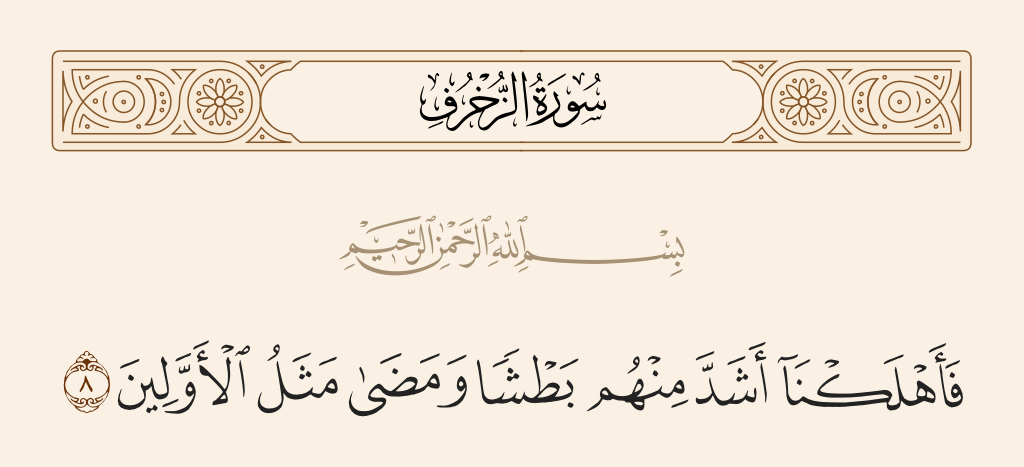 سُورَةُ الزُّخْرُفِ
بِسْمِ ٱللَّهِ ٱلرَّحْمَٰنِ ٱلرَّحِيمِ
فَأَهْلَكْنَآ أَشَدَّ مِنْهُم بَطْشًا وَمَضَىٰ مَثَلُ ٱلْأَوَّلِينَ ٨